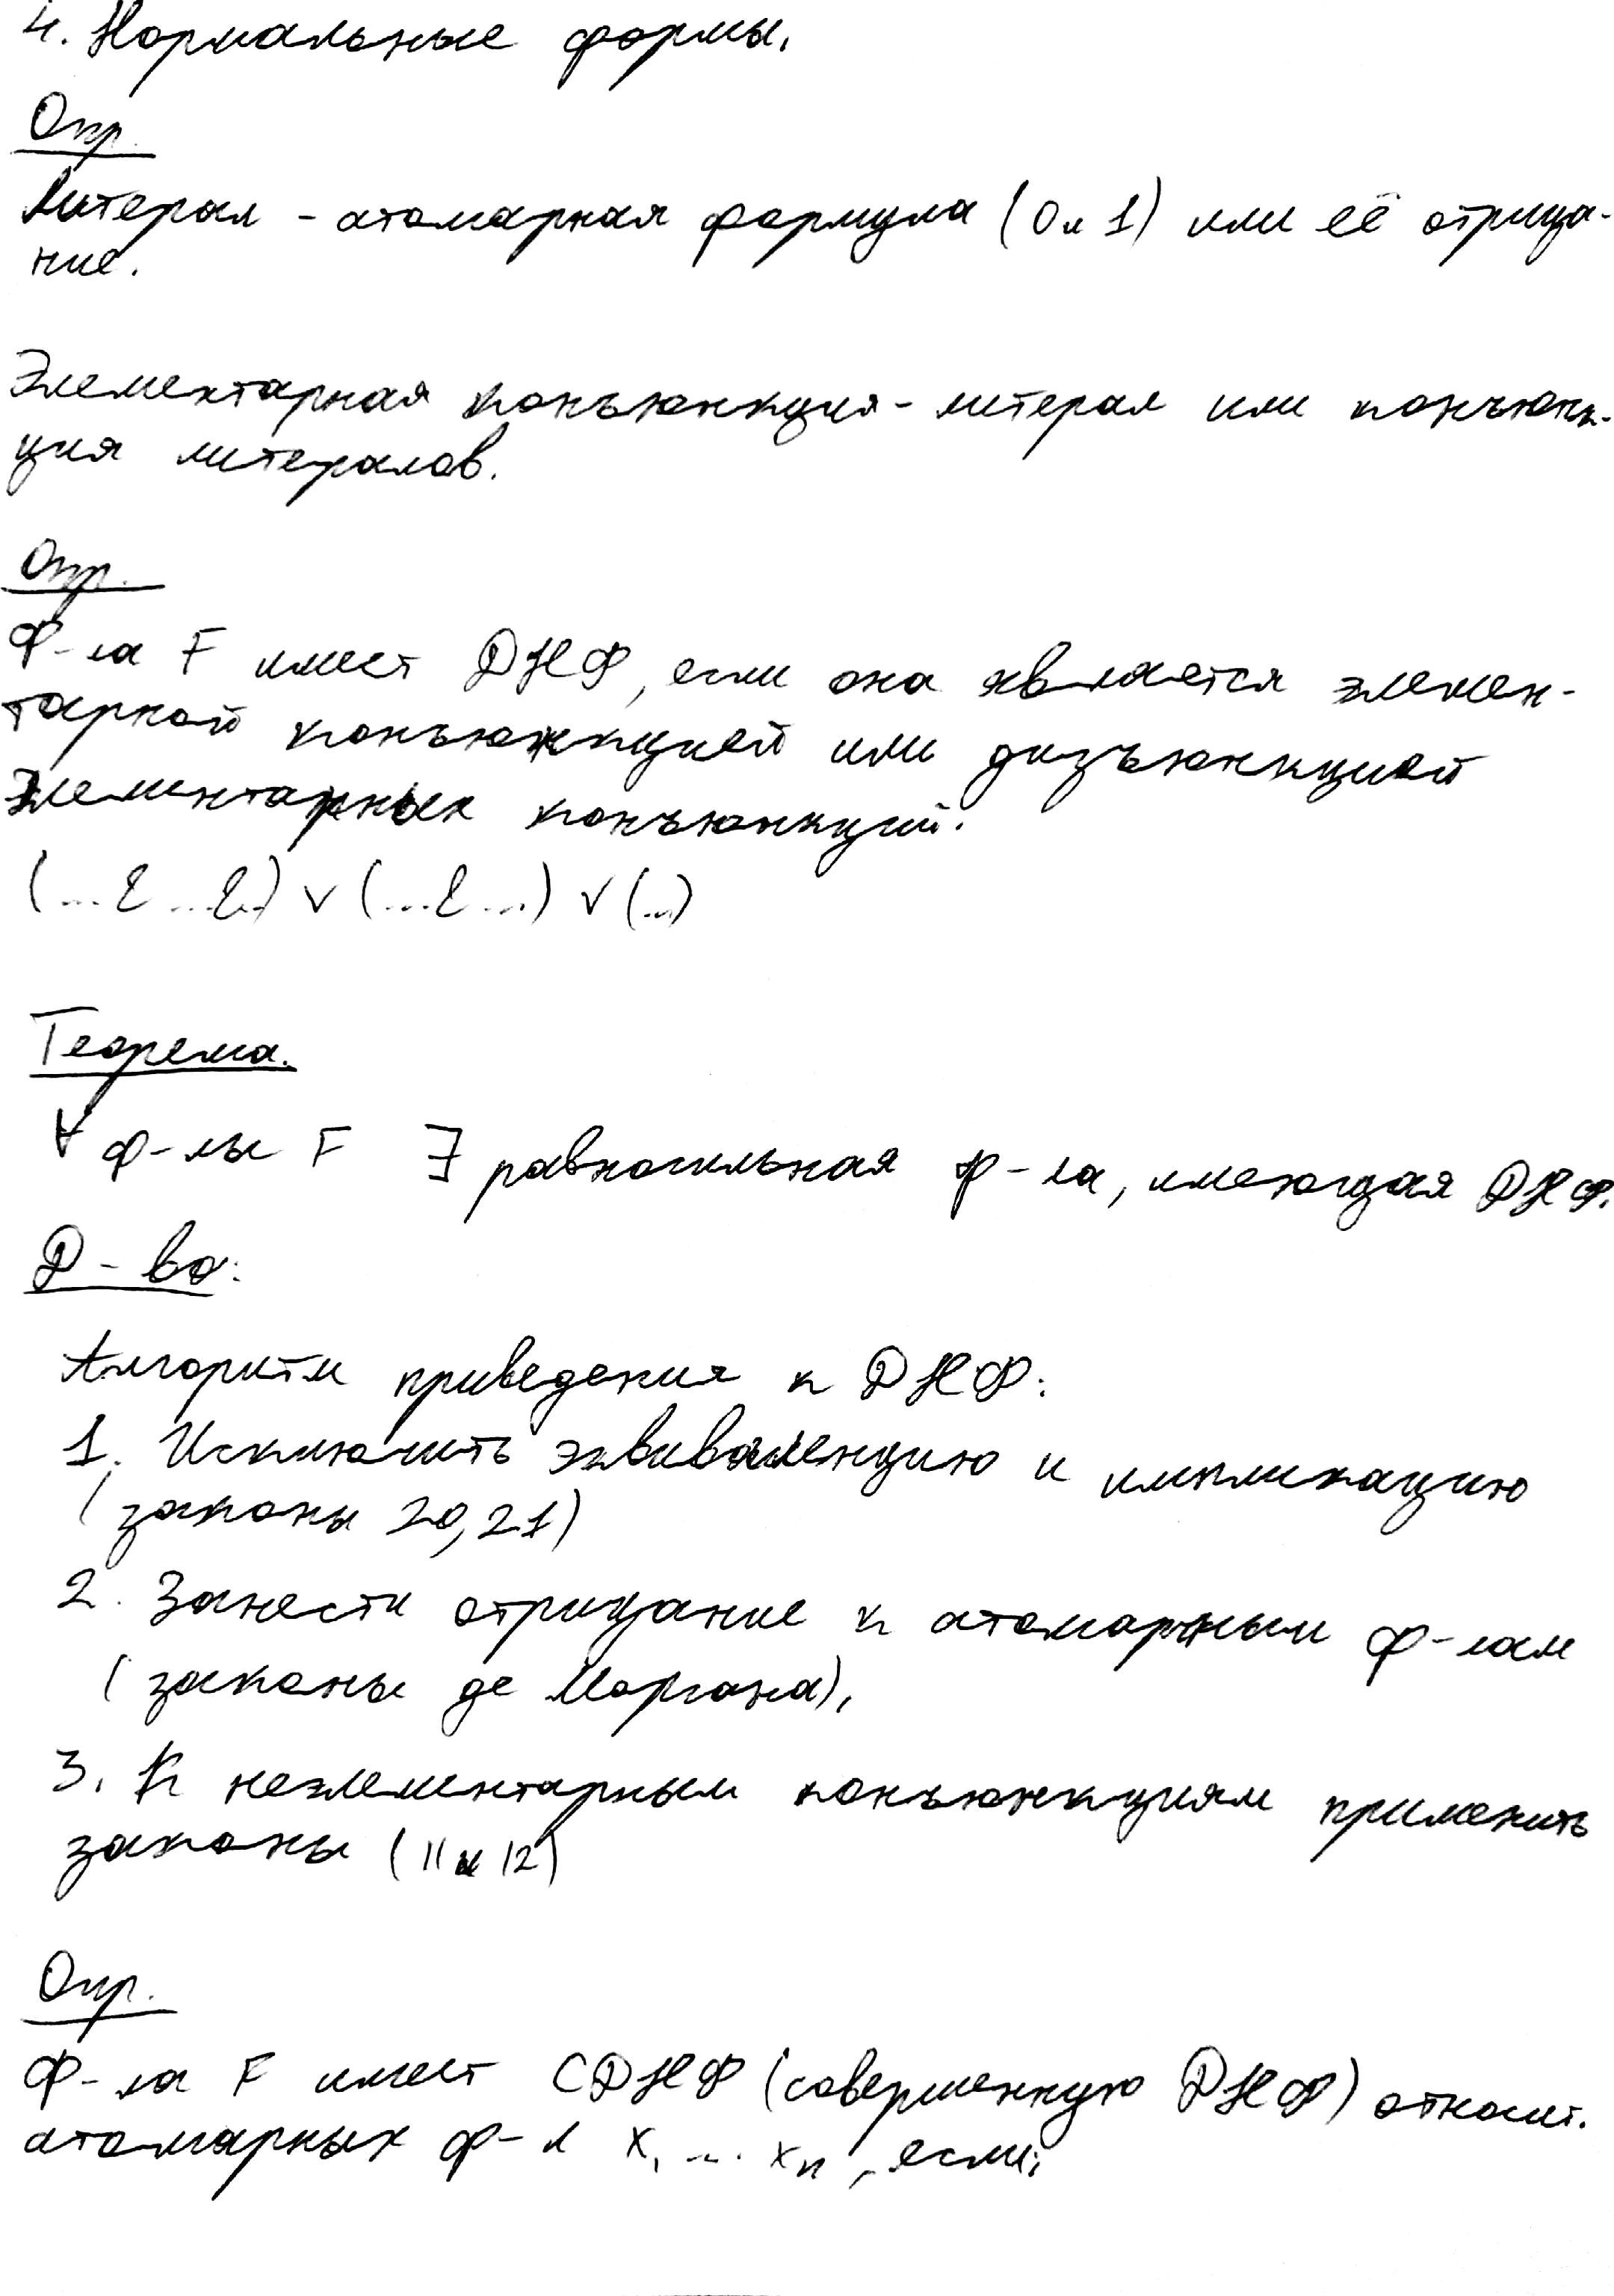 4. Нормальные формы.
Опр.
Литерал - атомарная формула (0 и 1) или её отрица-
ние.
Элементарная конъюнкция - литерал или конъюнк-
ция литералов.
Опр.
Ф-ла F имеет ДНФ, если она является элемен-
тарной конъюнкцией или дизъюнкцией
элементарных конъюнкций.
(... & ... &..) ∨ (... & ...) ∨ (...)
Теорема.
∀ ф-лы F ∃ равносильная ф-ла, имеющая ДНФ.
Д-во:
Алгоритм приведения к ДНФ:
1. Исключить эквиваленцию и импликацию
(законы 20, 21)
2. Занести отрицание к атомарным ф-лам
(законы де Моргана),
3. К неэлементарным конъюнкциям применить
законы (11 и 12)
Опр.
Ф-ла F имеет СДНФ (совершенную ДНФ) относит.
атомарных ф-л x₁ ... xₙ, если: